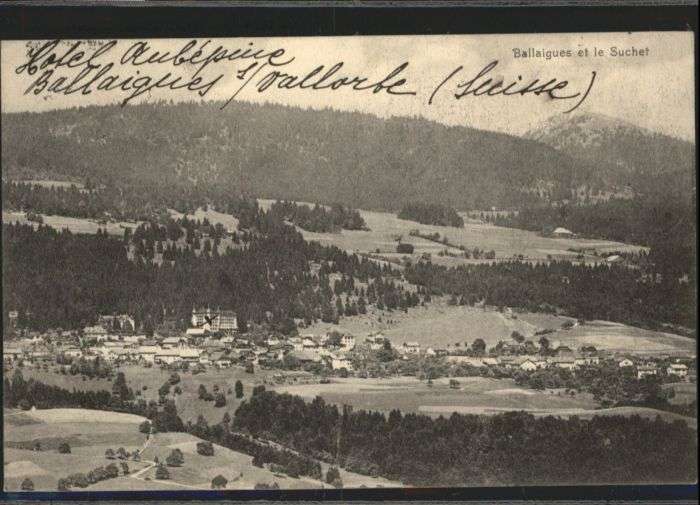 Ballaigues et le Suchet
Hotel Aubépine
Ballaigues s/Vallorbe (Suisse)